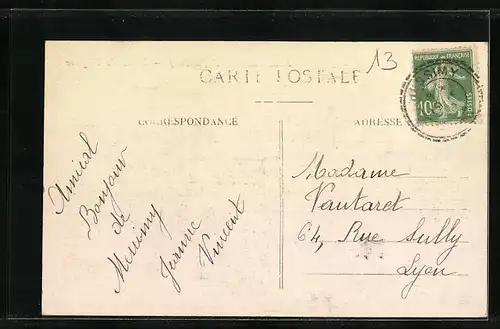 13
CARTE POSTALE
REPUBLIQUE FRANCAISE
10c
POSTES
CORRESPONDANCE
ADRESSE
Amical
Bonjour
de
Messimy
Jeanne
Vincent
Madame
Vautaret
64, Rue Sully
Lyon